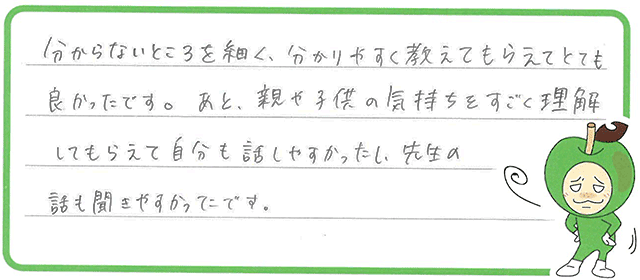 分からないところを細く、分かりやすく教えてもらえてとても
良かったです。あと、親や子供の気持ちをすごく理解
してもらえて自分も話しやすかったし、先生の
話も聞きやすかったです。